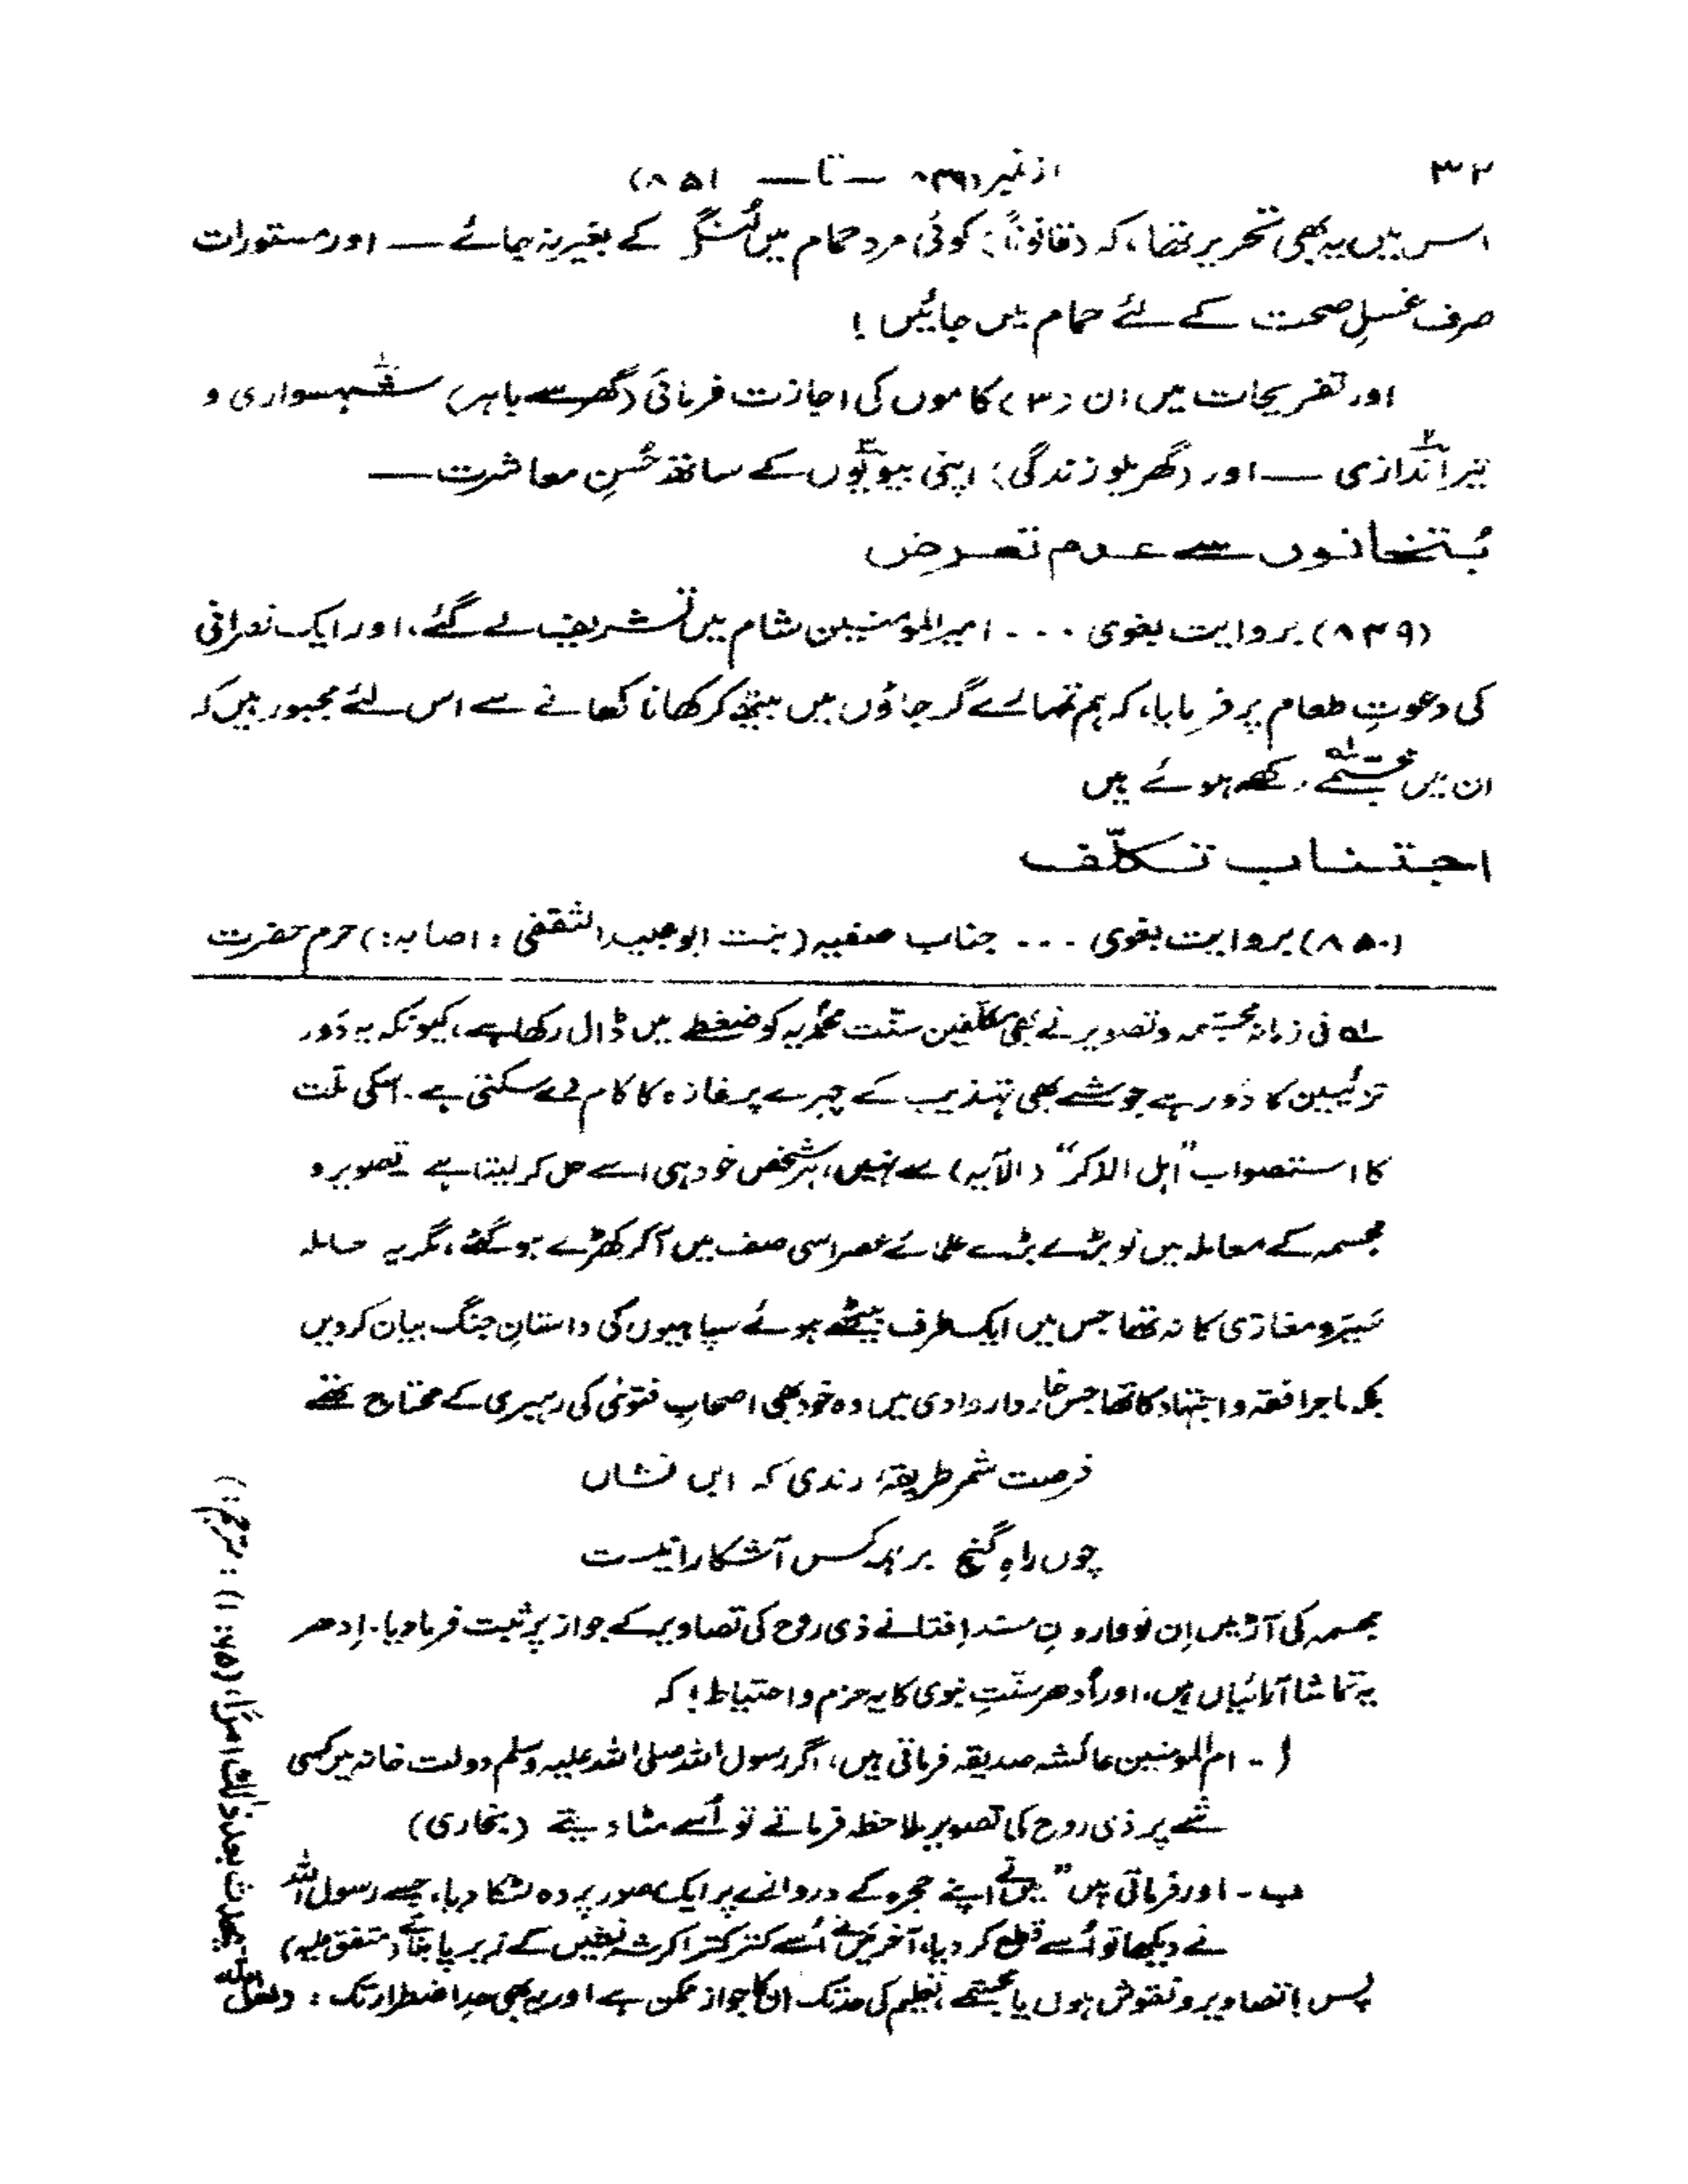 ۳۲
از نمبر (۸۳۹ — تا — ۸۵۱)
اس میں یہ بھی تحریر تھا، کہ (قانوناً:) کوئی مرد حمام میں لنگر کے بغیر نہ جائے — اور مستورات
صرف غسلِ صحت کے لئے حمام میں جائیں !
اور تفریحات میں ان (۳) کاموں کی اجازت فرمائی (گھر سے باہر) شہسواری و
تیراندازی — اور (گھریلو زندگی:) اپنی بیویوں کے ساتھ حُسنِ معاشرت —
بُتخانوں سے عدم تعرض
(۸۴۹) بروایت بغوی ... امیرالمومنیین شام میں تشریف لے گئے، اور ایک نصرانی
کی دعوتِ طعام پر فرمایا، کہ ہم تمہارے گرجاؤں میں بیٹھ کر کھانا کھانے سے اس لئے مجبور ہیں کہ
ان میں مجسّمے رکھے ہوئے ہیں
اجتناب تکلّف
(۸۵۰) بروایت بغوی ... جناب صفیہ (بنت ابو عبید الثقفی : اصابہ:) حرم حضرت
لہ فی زمانہ مجسّمہ و تصویر نے بھی مکلّفین سنّت محمدیہ کو ضغطے میں ڈال رکھا ہے، کیونکہ یہ دَور
تزئیین کا دَور ہے جو شے بھی تہذیب کے چہرے پر غازہ کا کام دے سکتی ہے۔ اسکی حلّت
کا استصواب "اہل الذکر" (الآیہ) سے نہیں، ہر شخص خود ہی اسے حل کر لیتا ہے تصویر و
مجسمہ کے معاملہ میں تو بڑے بڑے علمائے عصر اسی صف میں آ کر کھڑے ہو گئے، مگر یہ معاملہ
سِیَر و مغازی کا نہ تھا جس میں ایک طرف بیٹھے ہوئے سپاہیوں کی داستانِ جنگ بیان کردیں
بلکہ ماجرا فقہ و اجتہاد کا تھا جس خاردار وادی میں وہ خود بھی اصحابِ فتویٰ کی رہبری کے محتاج تھے
فرصت شمر طریقۂ رندی کہ ایں نشاں
چوں راہِ گنج بر ہمہ کس آشکارا نیست
مجسمہ کی آڑ میں اِن نوواردونِ مسند افتا نے ذی روح کی تصاویر کے جواز پر ثبت فرمادیا۔ اِدھر
یہ تماشا آرائیاں ہیں، اور اُدھر سنّتِ نبوی کا یہ حزم و احتیاط! کہ
ا ۔ ام المومنین عائشہ صدیقہ فرماتی ہیں، اگر رسول اللہ صلی اللہ علیہ وسلم دولت خانہ میں کسی
شے پر ذی روح کی تصویر ملاحظہ فرماتے تو اُسے مٹا دیتے (بخاری)
ب ۔ اور فرماتی ہیں "میں نے اپنے حجرہ کے دروازے پر ایک مصور پردہ لٹکا دیا، جسے رسول اللہ
نے دیکھا تو اُسے قطع کر دیا، آخر میں نے اُسے کتر کترا کر شہ نشیں کے زیر پا بنائے (متفق علیہ)
پس ! تصاویر و نقوش ہوں یا مجسّمے، تعلیم کی حد تک ان کا جواز ممکن ہے اور یہ بھی حدِ اضطرار تک :
یحدث بعد ذالک امرًا (۶۵: ۱) : مترجم :)